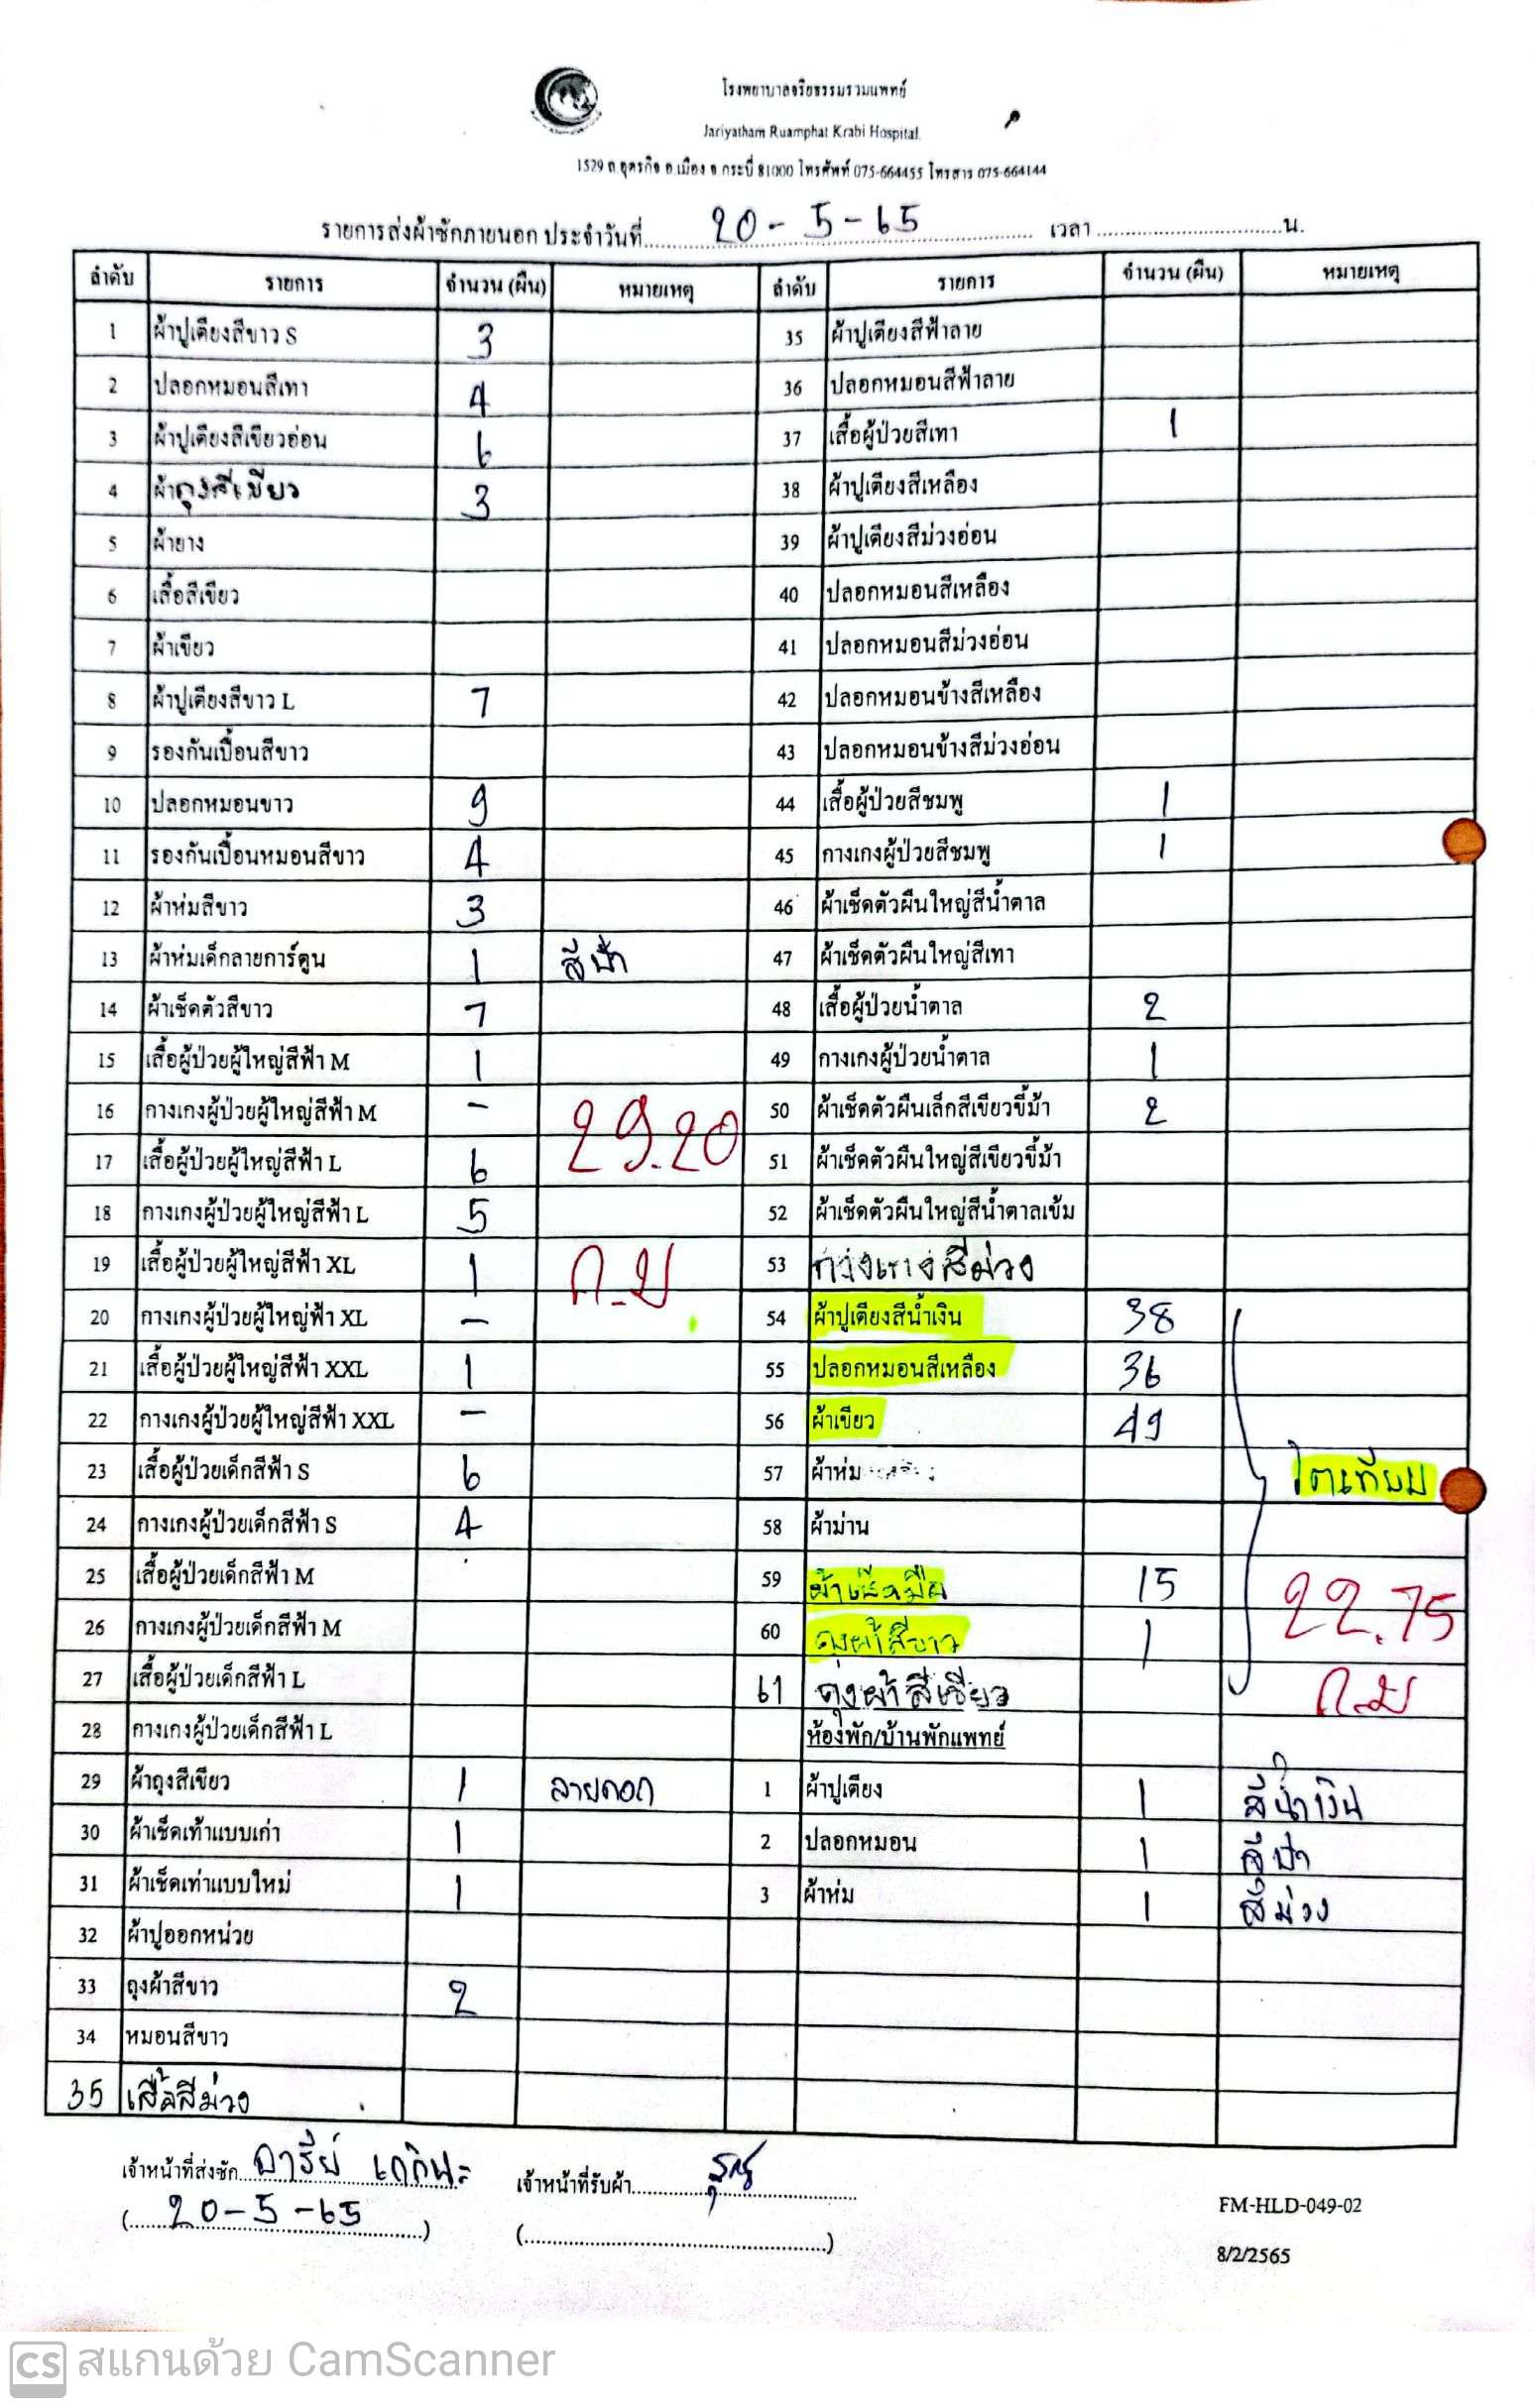 โรงพยาบาลจริยธรรมรวมแพทย์
Jariyatham Ruamphat Krabi Hospital.
1529 ถ.อุตรกิจ อ.เมือง จ กระบี่ 81000 โทรศัพท์ 075-664455 โทรสาร 075-664144
รายการส่งผ้าซักภายนอก ประจำวันที่ 20-5-65 เวลา น.
ลำดับ รายการ จำนวน (ผืน) หมายเหตุ ลำดับ รายการ จำนวน (ผืน) หมายเหตุ
1 ผ้าปูเตียงสีขาว S 3 35 ผ้าปูเตียงสีฟ้าลาย
2 ปลอกหมอนสีเทา 4 36 ปลอกหมอนสีฟ้าลาย
3 ผ้าปูเตียงสีเขียวอ่อน 6 37 เสื้อผู้ป่วยสีเทา 1
4 ผ้าถุงสีเขียว 3 38 ผ้าปูเตียงสีเหลือง
5 ผ้ายาง 39 ผ้าปูเตียงสีม่วงอ่อน
6 เสื้อสีเขียว 40 ปลอกหมอนสีเหลือง
7 ผ้าเขียว 41 ปลอกหมอนสีม่วงอ่อน
8 ผ้าปูเตียงสีขาว L 7 42 ปลอกหมอนข้างสีเหลือง
9 รองกันเปื้อนสีขาว 43 ปลอกหมอนข้างสีม่วงอ่อน
10 ปลอกหมอนขาว 9 44 เสื้อผู้ป่วยสีชมพู 1
11 รองกันเปื้อนหมอนสีขาว 4 45 กางเกงผู้ป่วยสีชมพู 1
12 ผ้าห่มสีขาว 3 46 ผ้าเช็ดตัวผืนใหญ่สีน้ำตาล
13 ผ้าห่มเด็กลายการ์ตูน 1 สีฟ้า 47 ผ้าเช็ดตัวผืนใหญ่สีเทา
14 ผ้าเช็ดตัวสีขาว 7 48 เสื้อผู้ป่วยน้ำตาล 2
15 เสื้อผู้ป่วยผู้ใหญ่สีฟ้า M 1 49 กางเกงผู้ป่วยน้ำตาล 1
16 กางเกงผู้ป่วยผู้ใหญ่สีฟ้า M - 29.20 50 ผ้าเช็ดตัวผืนเล็กสีเขียวขี้ม้า 2
17 เสื้อผู้ป่วยผู้ใหญ่สีฟ้า L 6 51 ผ้าเช็ดตัวผืนใหญ่สีเขียวขี้ม้า
18 กางเกงผู้ป่วยผู้ใหญ่สีฟ้า L 5 52 ผ้าเช็ดตัวผืนใหญ่สีน้ำตาลเข้ม
19 เสื้อผู้ป่วยผู้ใหญ่สีฟ้า XL 1 ก.ม 53 กางเกงสีม่วง
20 กางเกงผู้ป่วยผู้ใหญ่ฟ้า XL - 54 ผ้าปูเตียงสีน้ำเงิน 38
21 เสื้อผู้ป่วยผู้ใหญ่สีฟ้า XXL 1 55 ปลอกหมอนสีเหลือง 36
22 กางเกงผู้ป่วยผู้ใหญ่สีฟ้า XXL - 56 ผ้าเขียว 49
23 เสื้อผู้ป่วยเด็กสีฟ้า S 6 57 ผ้าห่ม ไตเทียม
24 กางเกงผู้ป่วยเด็กสีฟ้า S 4 58 ผ้าม่าน
25 เสื้อผู้ป่วยเด็กสีฟ้า M 59 ผ้าเช็ดมือ 15 22.75
26 กางเกงผู้ป่วยเด็กสีฟ้า M 60 ถุงผ้าสีขาว 1
27 เสื้อผู้ป่วยเด็กสีฟ้า L 61 ถุงผ้าสีเขียว ก.ม
28 กางเกงผู้ป่วยเด็กสีฟ้า L ห้องพัก/บ้านพักแพทย์
29 ผ้าถุงสีเขียว 1 ลายดอก 1 ผ้าปูเตียง 1 สีน้ำเงิน
30 ผ้าเช็ดเท้าแบบเก่า 1 2 ปลอกหมอน 1 สีฟ้า
31 ผ้าเช็ดเท่าแบบใหม่ 1 3 ผ้าห่ม 1 สีม่วง
32 ผ้าปูออกหน่วย
33 ถุงผ้าสีขาว 2
34 หมอนสีขาว
35 เสื้อสีม่วง
เจ้าหน้าที่ส่งซัก เจ้าหน้าที่รับผ้า
(20-5-65) ( ) FM-HLD-049-02
8/2/2565
CS สแกนด้วย CamScanner